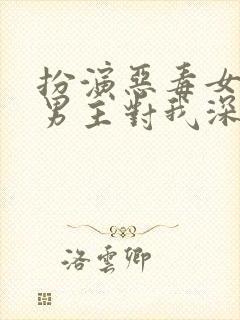 扮演惡毒女
男主對我深
洛雲卿